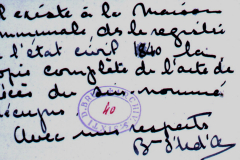 existe à la Maison
ommunale ds le registre
e l'état civil 1840 la
opie complète de l'acte de
écès du sus nommé
écupus
Avec mes respects
40